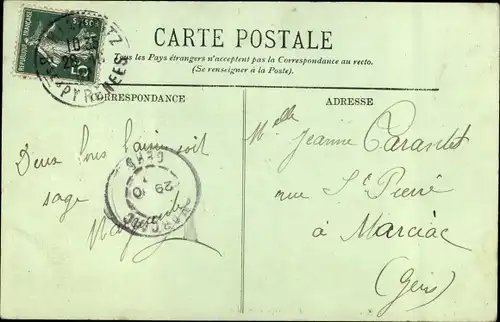 CARTE POSTALE
Tous les Pays étrangers n'acceptent pas la Correspondance au recto.
(Se renseigner à la Poste.)
CORRESPONDANCE
ADRESSE
REPUBLIQUE FRANÇAISE
5
PYRENEES
Deux bons baisers soit
sage
MARCIAC
GERS
29
10
Melle Jeanne
rue St Pierre
à Marciac
(Gers)